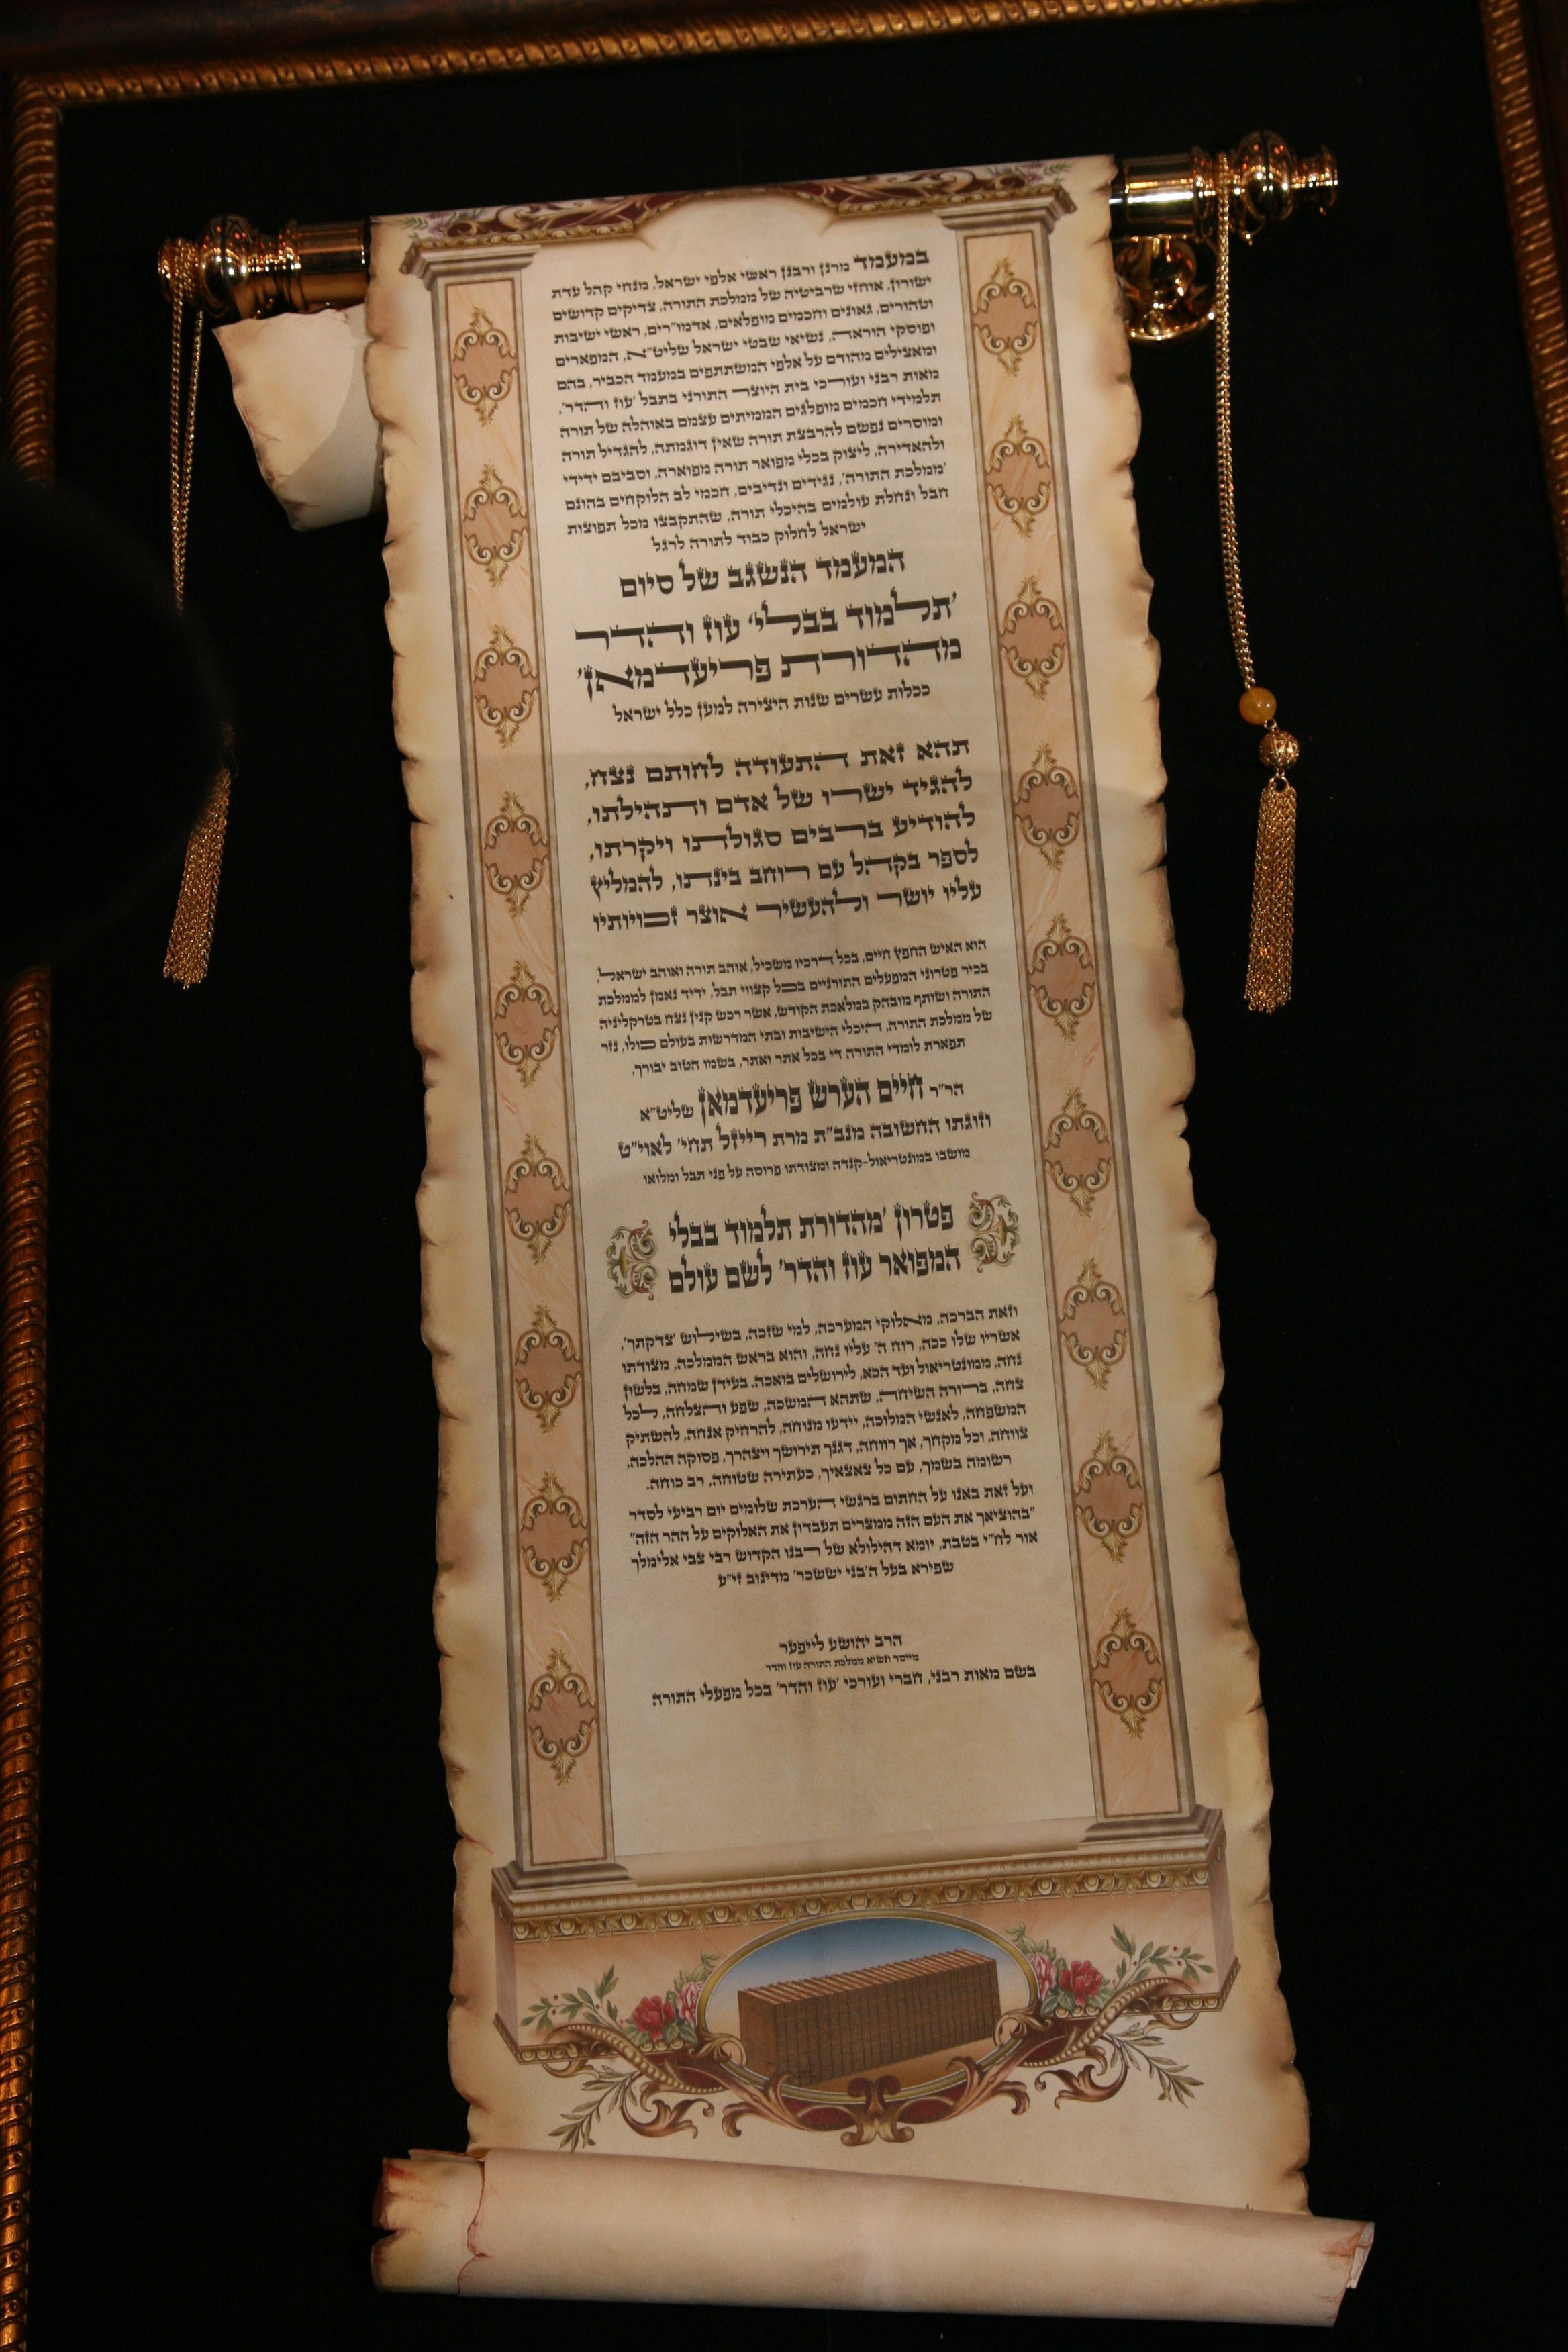 במעמד מרנן ורבנן ראשי אלפי ישראל, מנחי קהל עדת
ישורון, אוחזי שרביטיה של ממלכת התורה, צדיקים קדושים
וטהורים, גאונים וחכמים מופלאים, אדמו"רים, ראשי ישיבות
ופוסקי הוראה, נשיאי שבטי ישראל שליט"א, המפארים
ומאצילים מהודם על אלפי המשתתפים במעמד הכביר, בהם
מאות רבני ועורכי בית היוצר התורני בתבל 'עוז והדר',
תלמידי חכמים מופלגים הממיתים עצמם באוהלה של תורה
ומוסרים נפשם להרבצת תורה שאין דוגמתה, להגדיל תורה
ולהאדירה, ליצוק בכלי מפואר תורה מפוארה, וסביבם ידידי
'ממלכת התורה', נגידים ונדיבים, חכמי לב הלוקחים בהונם
חבל ונחלת עולמים בהיכלי תורה, שהתקבצו מכל תפוצות
ישראל לחלוק כבוד לתורה לרגל
המעמד הנשגב של סיום
'תלמוד בבלי' עוז והדר
מהדורת פריעדמאן'
ככלות עשרים שנות היצירה למען כלל ישראל
תהא זאת התעודה לחותם נצח,
להגיד ישרו של אדם ותהילתו,
להודיע ברבים סגולתו ויקרתו,
לספר בקהל עם רוחב בינתו, להמליץ
עליו יושר ולהעשיר אוצר זכויותיו
הוא האיש החפץ חיים, בכל דרכיו משכיל, אוהב תורה ואוהב ישראל,
בכיר פטרוני המפעלים התורניים בכל קצווי תבל, ידיד נאמן לממלכת
התורה ושותף מובהק במלאכת הקודש, אשר רכש קנין נצח בטרקליניה
של ממלכת התורה, היכלי הישיבות ובתי המדרשות בעולם כולו, נזר
תפארת לומדי התורה די בכל אתר ואתר, בשמו הטוב יבורך,
הר"ר חיים הערש פריעדמאן שליט"א
וזוגתו החשובה מנב"ת מרת רייזל תחי' לאוי"ט
מושבו במונטריאול-קנדה ומצודתו פרוסה על פני תבל ומלואו
פטרון 'מהדורת תלמוד בבלי
המפואר עוז והדר' לשם עולם
וזאת הברכה, מאלוקי המערכה, למי שזכה, בשילוש 'צדקתך',
אשריו שלו ככה, רוח ה' עליו נחה, והוא בראש הממלכה, מצודתו
נחה, ממונטריאול ועד הכא, לירושלים בואכה. בעידן שמחה, בלשון
צחה, ברורה השיחה, שתהא המשכה, שפע והצלחה, לכל
המשפחה, לאנשי המלוכה, יידעו מנוחה, להרחיק אנחה, להשתיק
צווחה, וכל מקחך, אך רווחה, דגנך תירושך ויצהרך, פסוקה ההלכה,
רשומה בשמך, עם כל צאצאיך, כעתירה שטוחה, רב כוחה.
ועל זאת באנו על החתום ברגשי הערכת שלומים יום רביעי לסדר
"בהוציאך את העם הזה ממצרים תעבדון את האלוקים על ההר הזה"
אור לח"י בטבת, יומא דהילולא של רבנו הקדוש רבי צבי אלימלך
שפירא בעל ה'בני יששכר' מדינוב זי"ע
הרב יהושע לייפער
מייסד ונשיא ממלכת התורה עוז והדר
בשם מאות רבני, חברי ועורכי 'עוז והדר' בכל מפעלי התורה